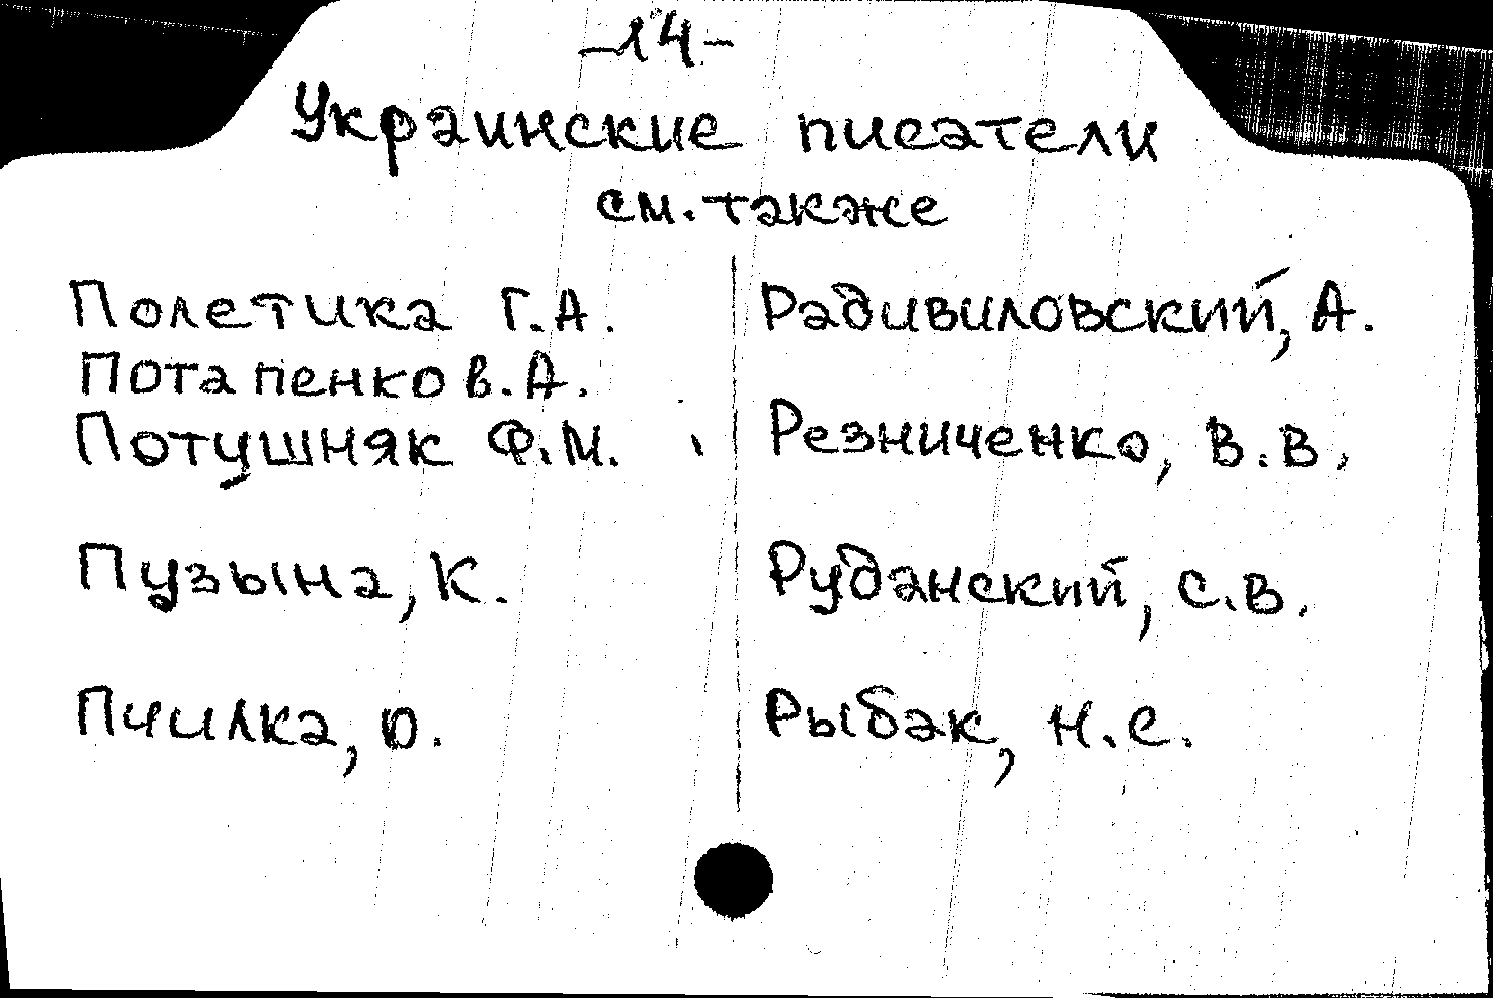 -14-
Украинские писатели
см. также
Полетика Г.А.
Потапенко В.А.
Потушняк Ф.М.
Пузына, К.
Пчилка, О.
Радивиловский, А.
Резниченко, В.В.
Руданский, С.В.
Рыбак, Н.С.